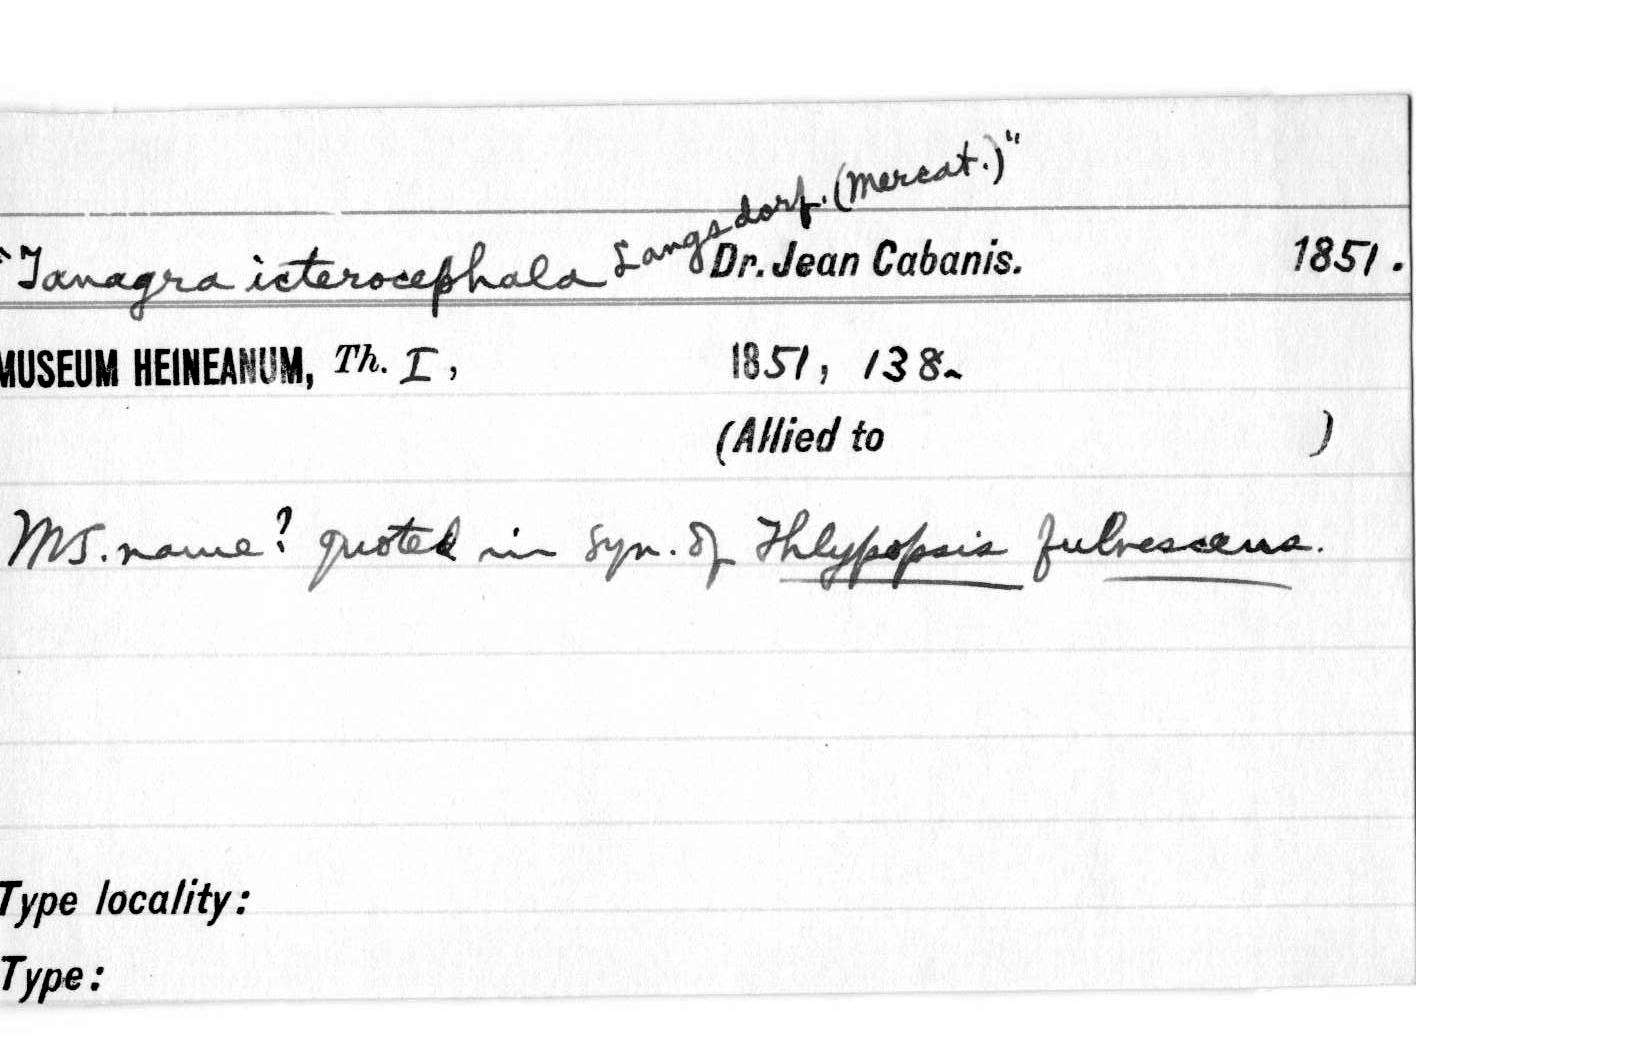 "Tanagra icterocephala Langsdorf. (Mercat.)" Dr. Jean Cabanis. 1851.
MUSEUM HEINEANUM, Th. I, 1851, 138.
(Allied to )
MS. name? quoted in syn. of Thlypopsis fulvescens.
Type locality:
Type: